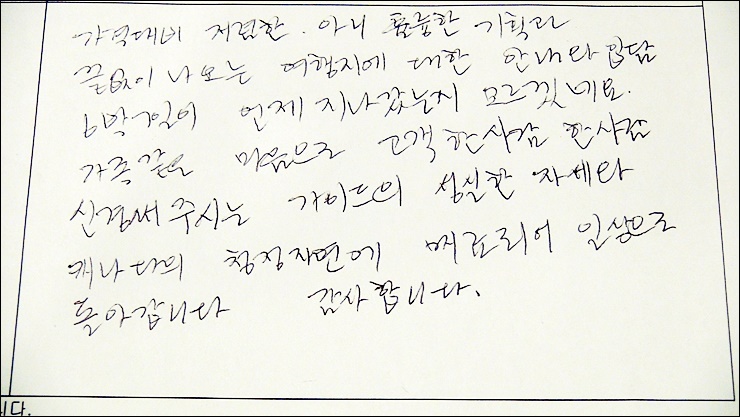 가격대비 저렴한. 아니 훌륭한 기획과
끝없이 나오는 여행지에 대한 안내와 입담
6박7일이 언제 지나갔는지 모르겠네요.
가족같은 마음으로 고객 한사람 한사람
신경써 주시는 가이드의 성실한 자세와
캐나다의 청정자연에 매료되어 일상으로
돌아갑니다 감사합니다.
니다.